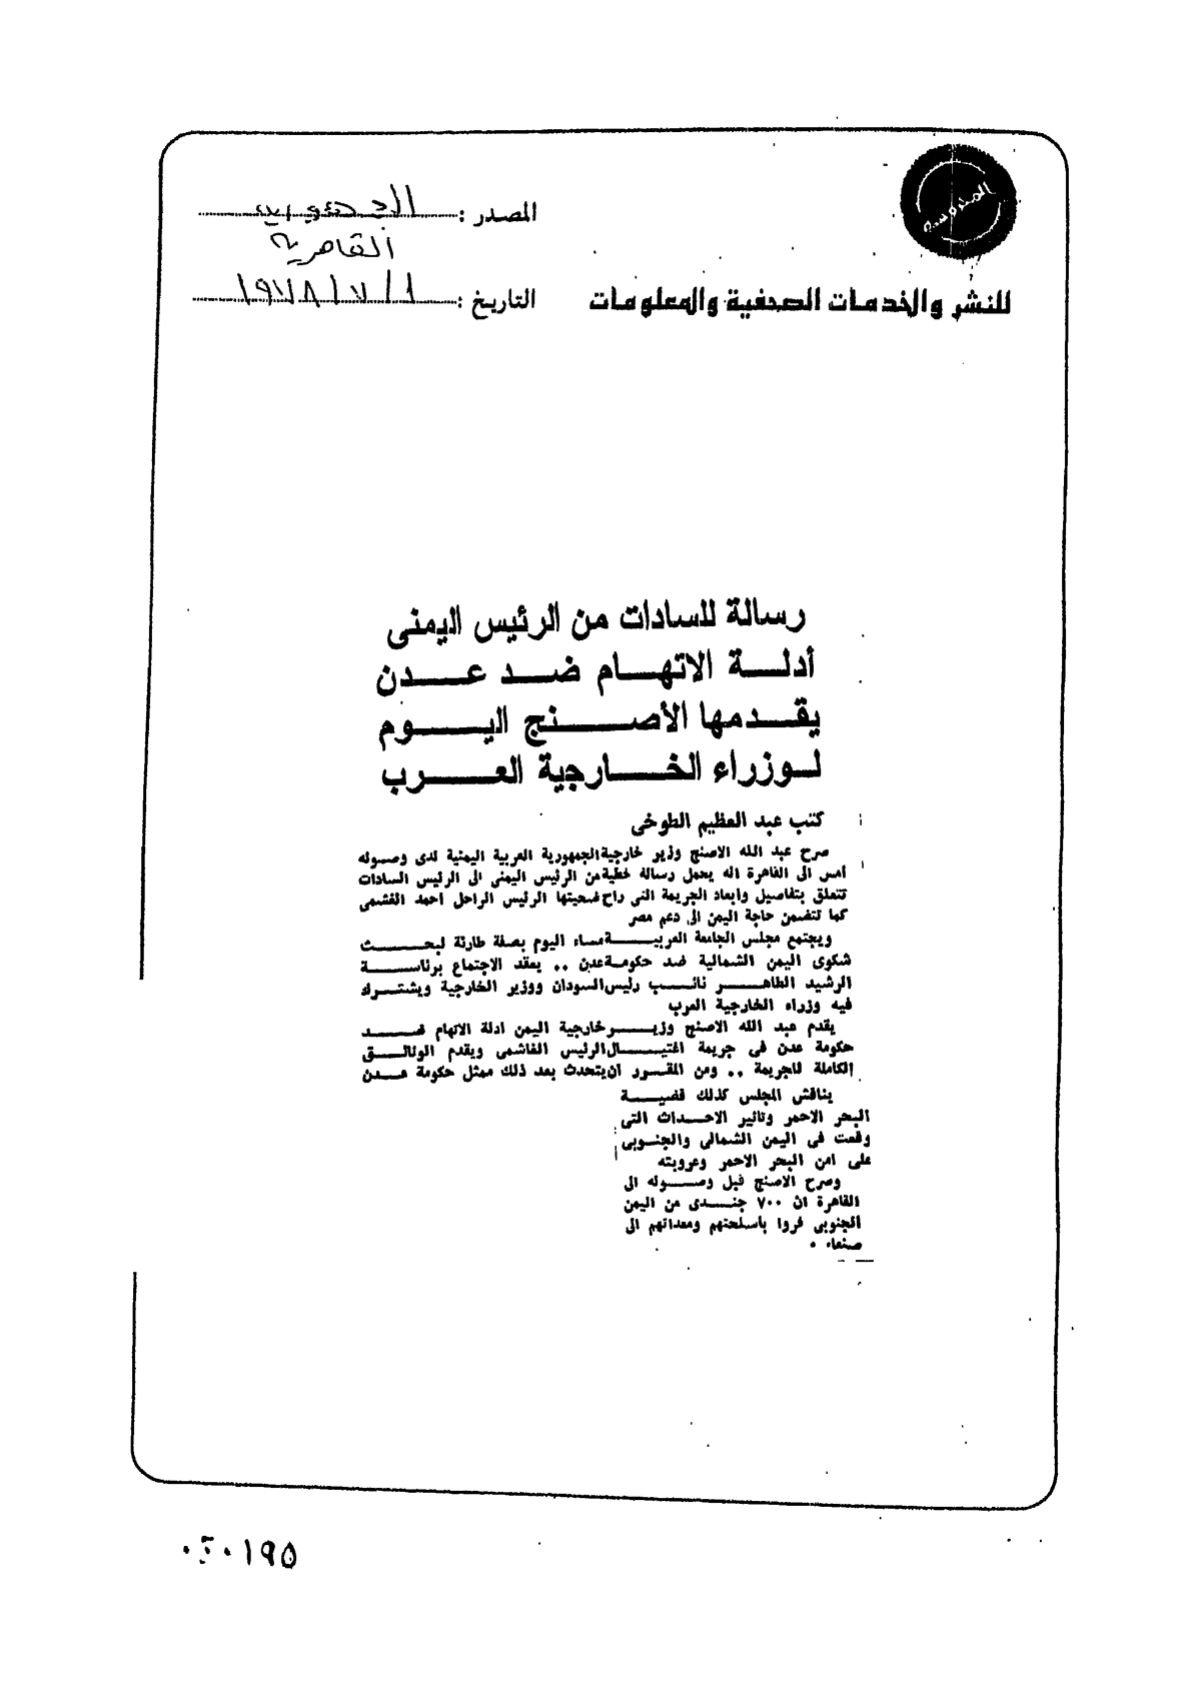 المحروسة
المصدر : الجمهورية
القاهرية
للنشر والخدمات الصحفية والمعلومات
التاريخ : ١ / ٧ / ١٩٧٨
رسالة للسادات من الرئيس اليمنى
أدلة الاتهام ضد عدن
يقدمها الأصنج اليوم
لوزراء الخارجية العرب
كتب عبد العظيم الطوخى
صرح عبد الله الاصنج وزير خارجية الجمهورية العربية اليمنية لدى وصوله
امس الى القاهرة انه يحمل رسالة خطية من الرئيس اليمنى الى الرئيس السادات
تتعلق بتفاصيل وابعاد الجريمة التى راح ضحيتها الرئيس الراحل احمد الغشمى
كما تتضمن حاجة اليمن الى دعم مصر
ويجتمع مجلس الجامعة العربية مساء اليوم بصفة طارئة لبحث
شكوى اليمن الشمالية ضد حكومة عدن .. يعقد الاجتماع برئاسة
الرشيد الطاهر نائب رئيس السودان ووزير الخارجية ويشترك
فيه وزراء الخارجية العرب
يقدم عبد الله الاصنج وزير خارجية اليمن ادلة الاتهام ضد
حكومة عدن فى جريمة اغتيال الرئيس الغاشمى ويقدم الوثائق
الكاملة للجريمة .. ومن المقرر ان يتحدث بعد ذلك ممثل حكومة عدن
يناقش المجلس كذلك قضية
البحر الاحمر وتاثير الاحداث التى
وقعت فى اليمن الشمالى والجنوبى
على امن البحر الاحمر وعروبته
وصرح الاصنج قبل وصوله الى
القاهرة ان ٧٠٠ جندى من اليمن
الجنوبى فروا بأسلحتهم ومعداتهم الى
صنعاء .
١٩٥